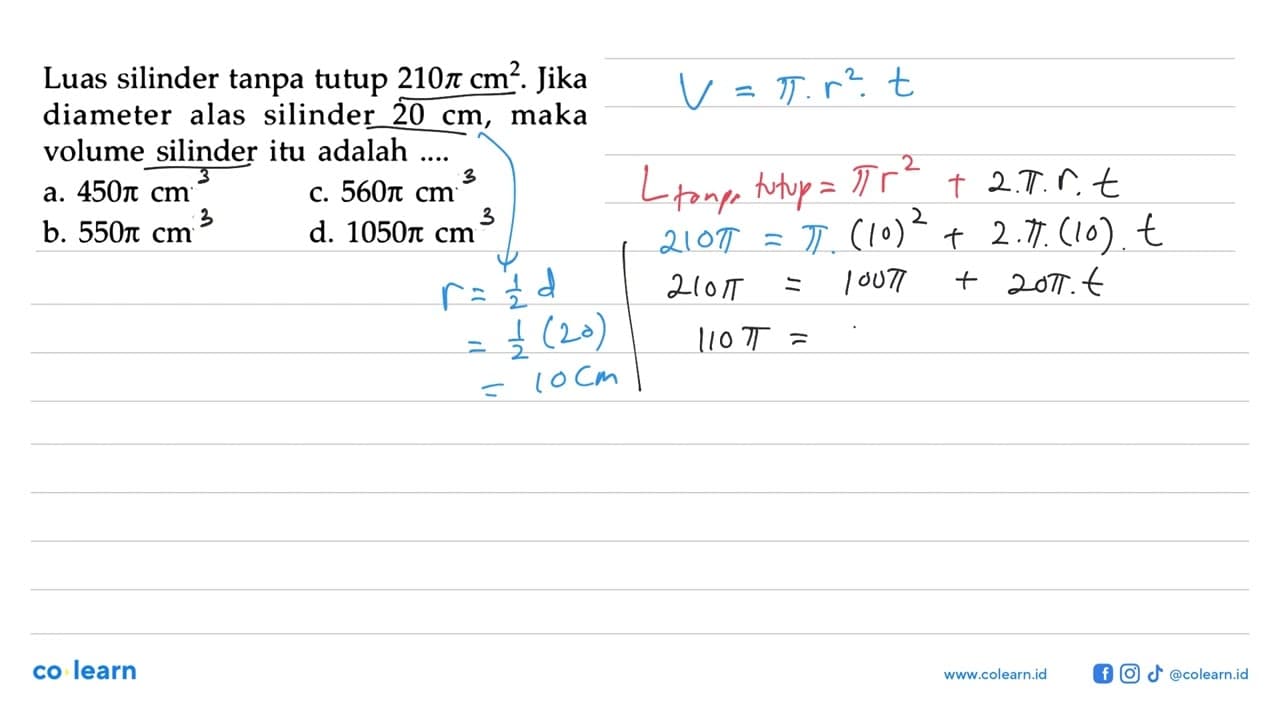 Luas silinder tanpa tutup 210π cm². Jika
diameter alas silinder 20 cm, maka
volume silinder itu adalah ....
a. 450π cm³ c. 560π cm³
b. 550π cm³ d. 1050π cm³
r = 1/2 d
= 1/2 (20)
= 10 cm
V = π.r².t
L tanpa tutup = πr² + 2.π.r.t
210π = π.(10)² + 2.π.(10).t
210π = 100π + 20π.t
110π =
co learn
www.colearn.id
@colearn.id